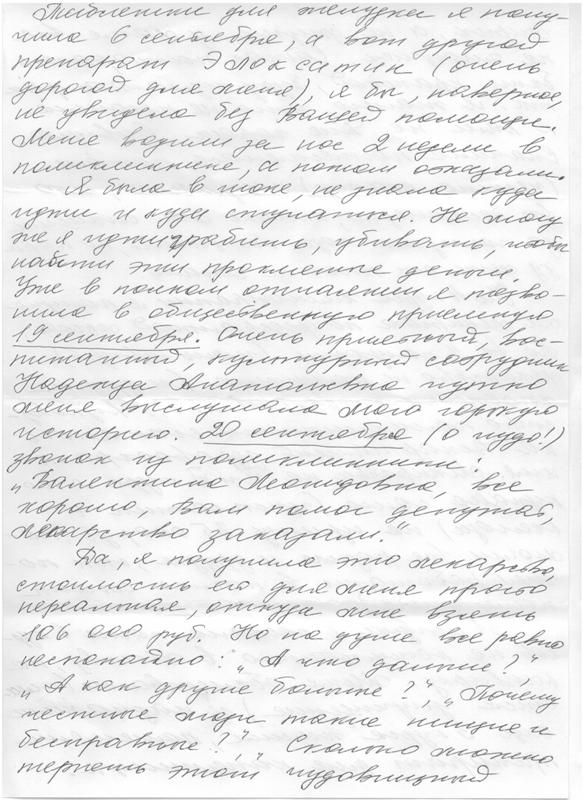 Таблетки для желудка я полу-
чила 6 сентября, а вот другой
препарат Элоксатин (очень
дорогой для меня), я бы, наверное,
не увидела без Вашей помощи.
Меня водили за нос 2 недели в
поликлинике, а потом отказали.
Я была в шоке, не знала куда
идти и куда стучаться. Не могу
же я идти грабить, убивать, чтобы
найти эти проклятые деньги.
Уже в полном отчаянии я позво-
нила в общественную приемную
19 сентября. Очень приятный, вос-
питанный, культурный сотрудник
Надежда Анатольевна чутко
меня выслушала мою горькую
историю. 20 сентября (о чудо!)
звонок из поликлиники:
„Валентина Леонидовна, все
хорошо, Вам помог депутат,
лекарство заказали."
Да, я получила это лекарство,
стоимость его для меня просто
нереальная, откуда мне взять
106 000 руб. Но на душе все равно
неспокойно: „А что дальше?",
„А как другие больные?", „Почему
честные люди такие нищие и
бесправные?", „Сколько можно
терпеть этот чудовищный